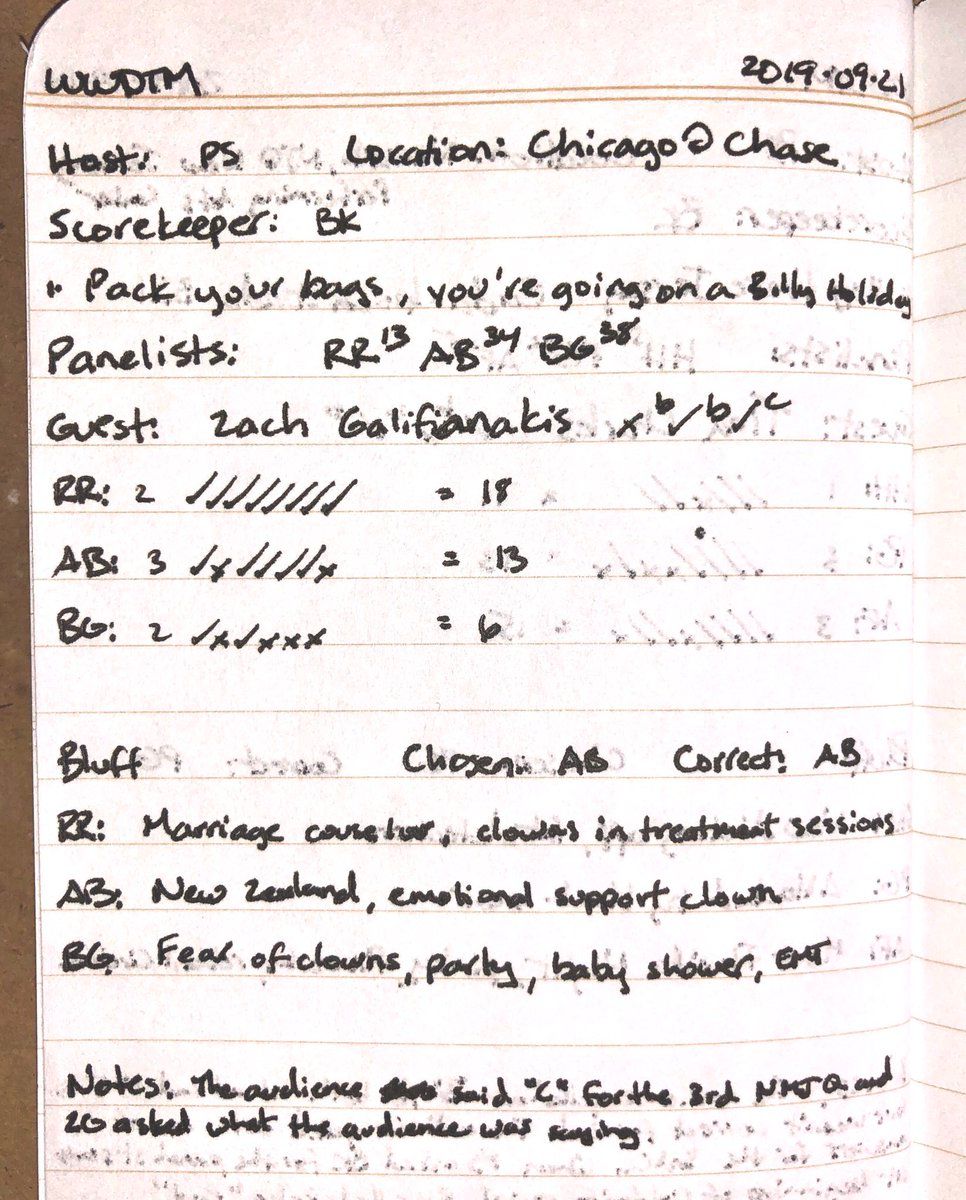 WWDTM 2019·09·21
Host: PS Location: Chicago @ Chase
Scorekeeper: BK
" Pack your bags, you're going on a Billy Holiday
Panelists: RR 13 AB 34 BG 38
Guest: Zach Galifianakis x b ✓ b ✓ c
RR: 2 ✓✓✓✓✓✓✓✓ = 18
AB: 3 ✓x✓✓✓✓x = 13
BG: 2 ✓x✓xxx = 6
Bluff Chosen: AB Correct: AB
RR: Marriage counselor, clowns in treatment sessions
AB: New Zealand, emotional support clown
BG: Fear of clowns, party, baby shower, EMT
Notes: The audience said "C" for the 3rd NMJ Q and
ZG asked what the audience was saying.